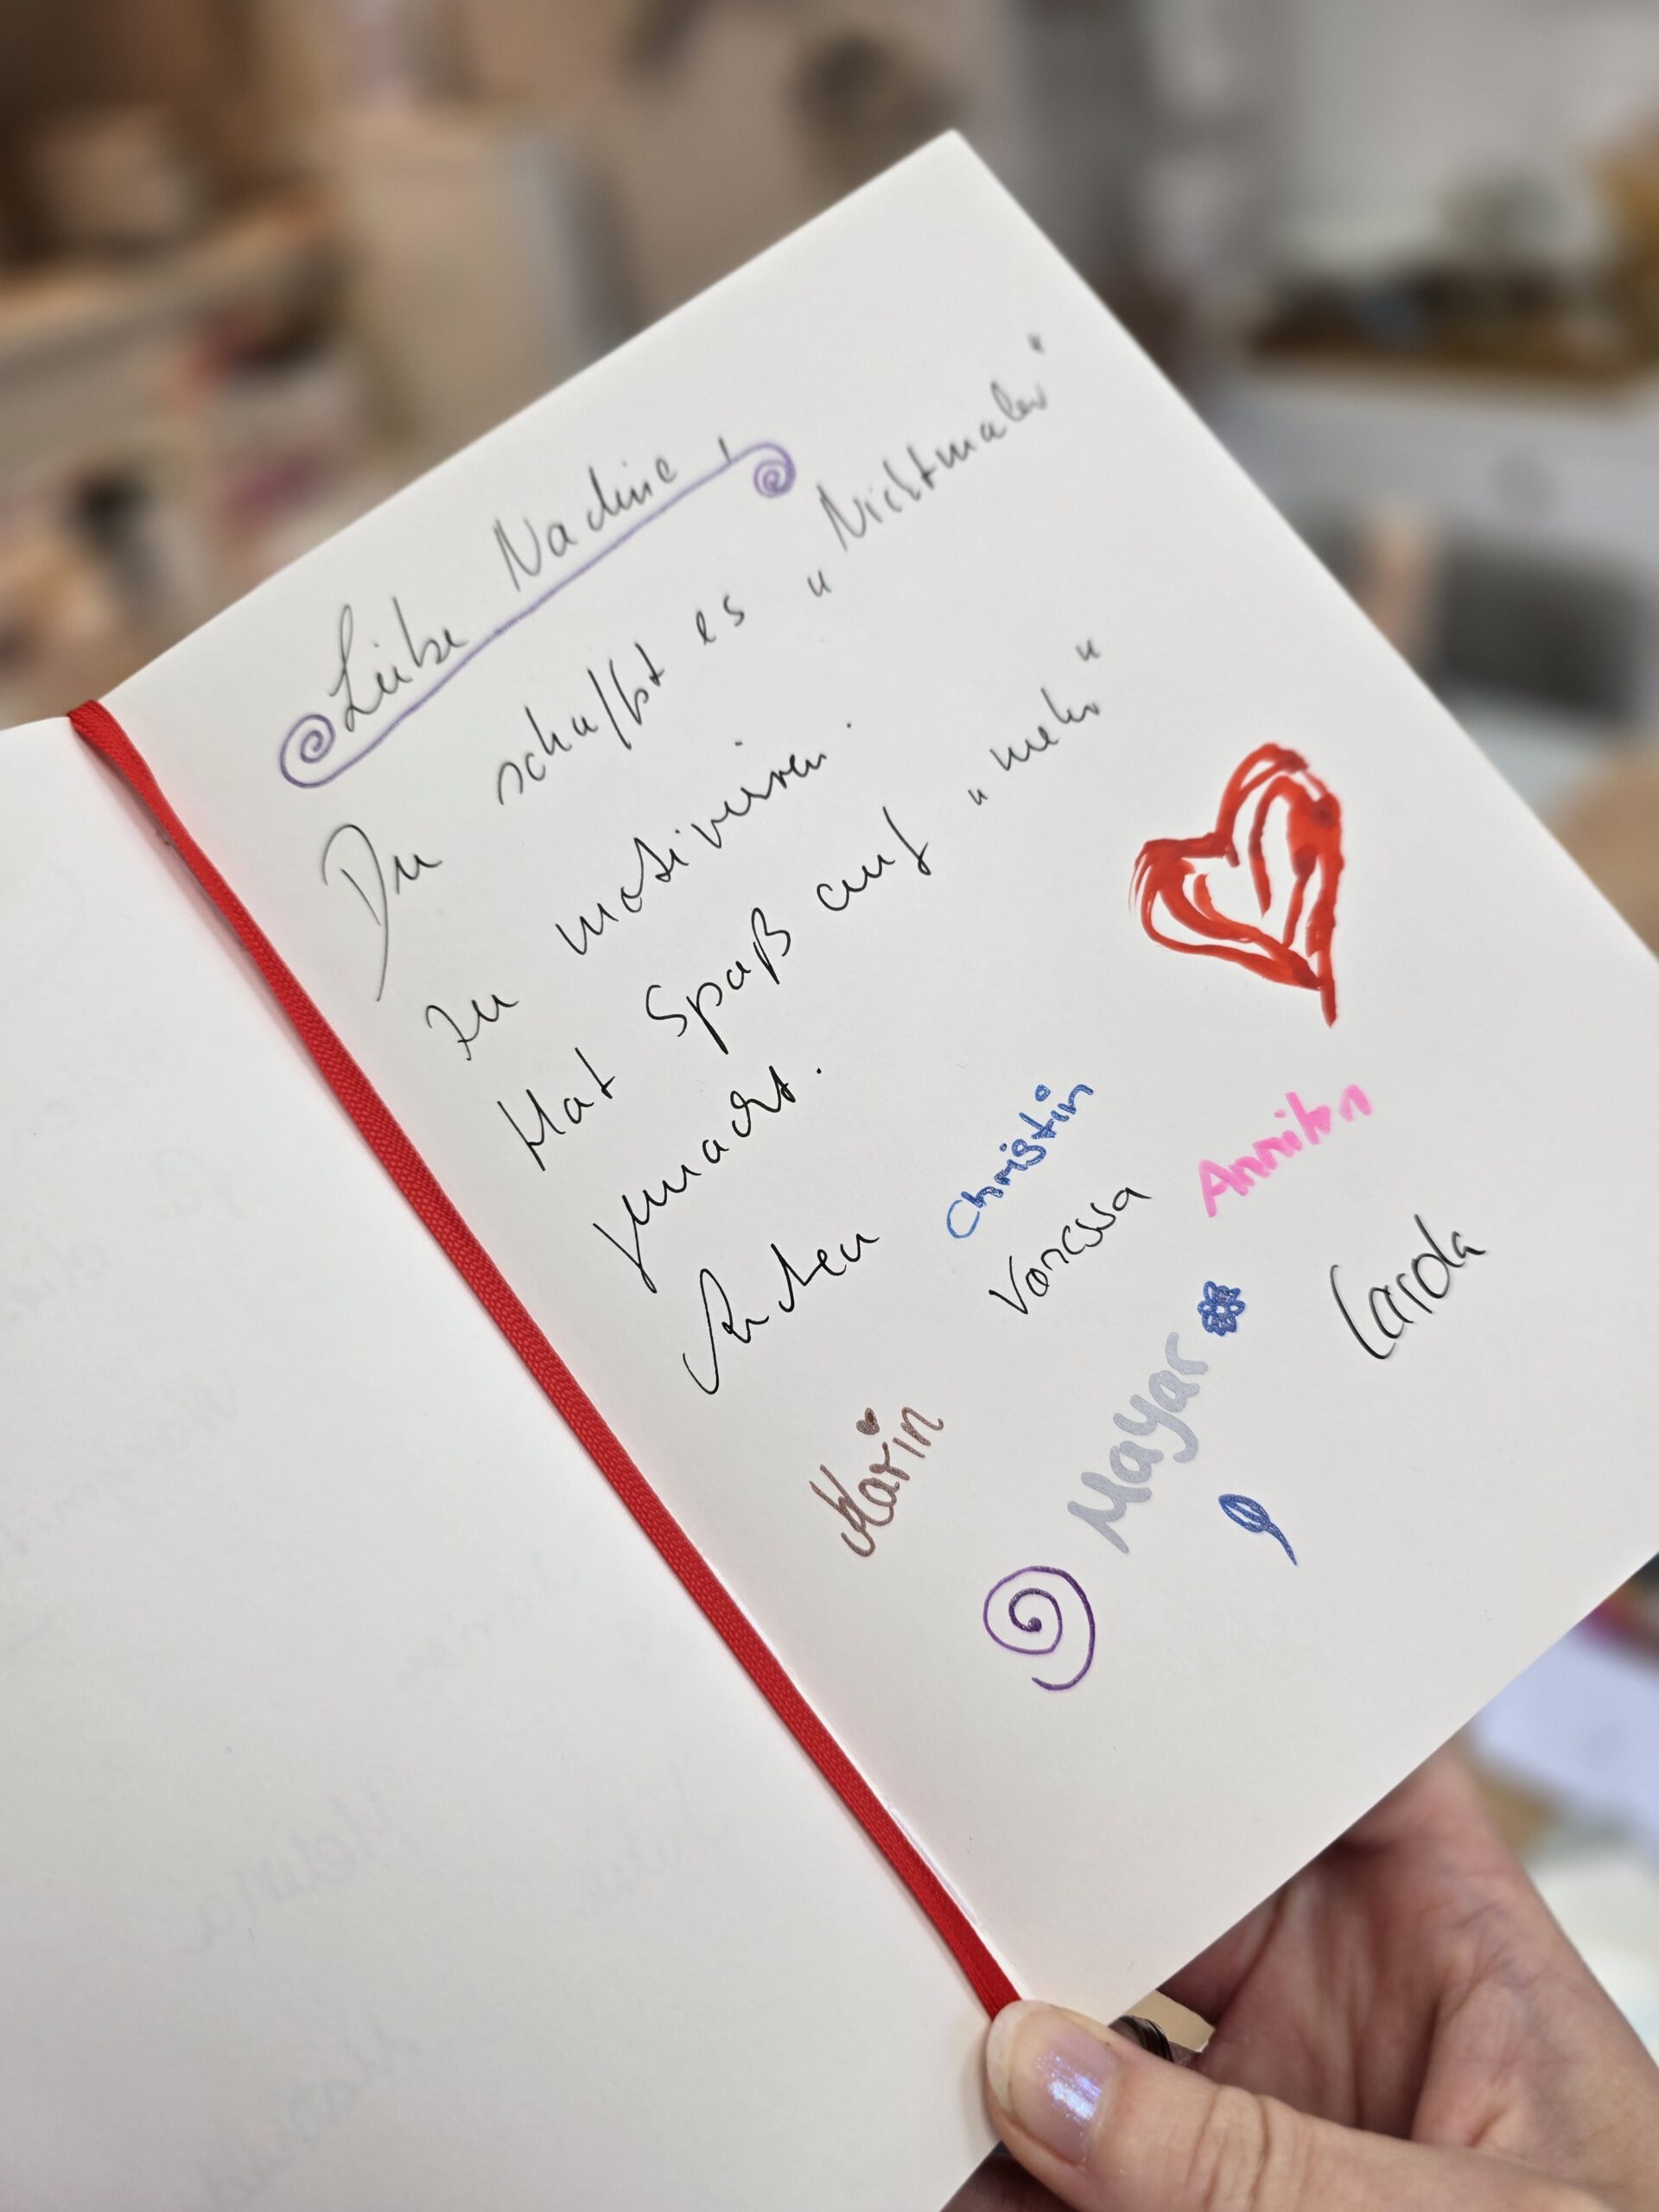 Liebe Nadine,
Du schaffst es "Nichtmaler"
zu motivieren.
Hat Spaß auf "mehr"
gemacht.
Christin
Annika
Vanessa
Carola
Mayar
Karin